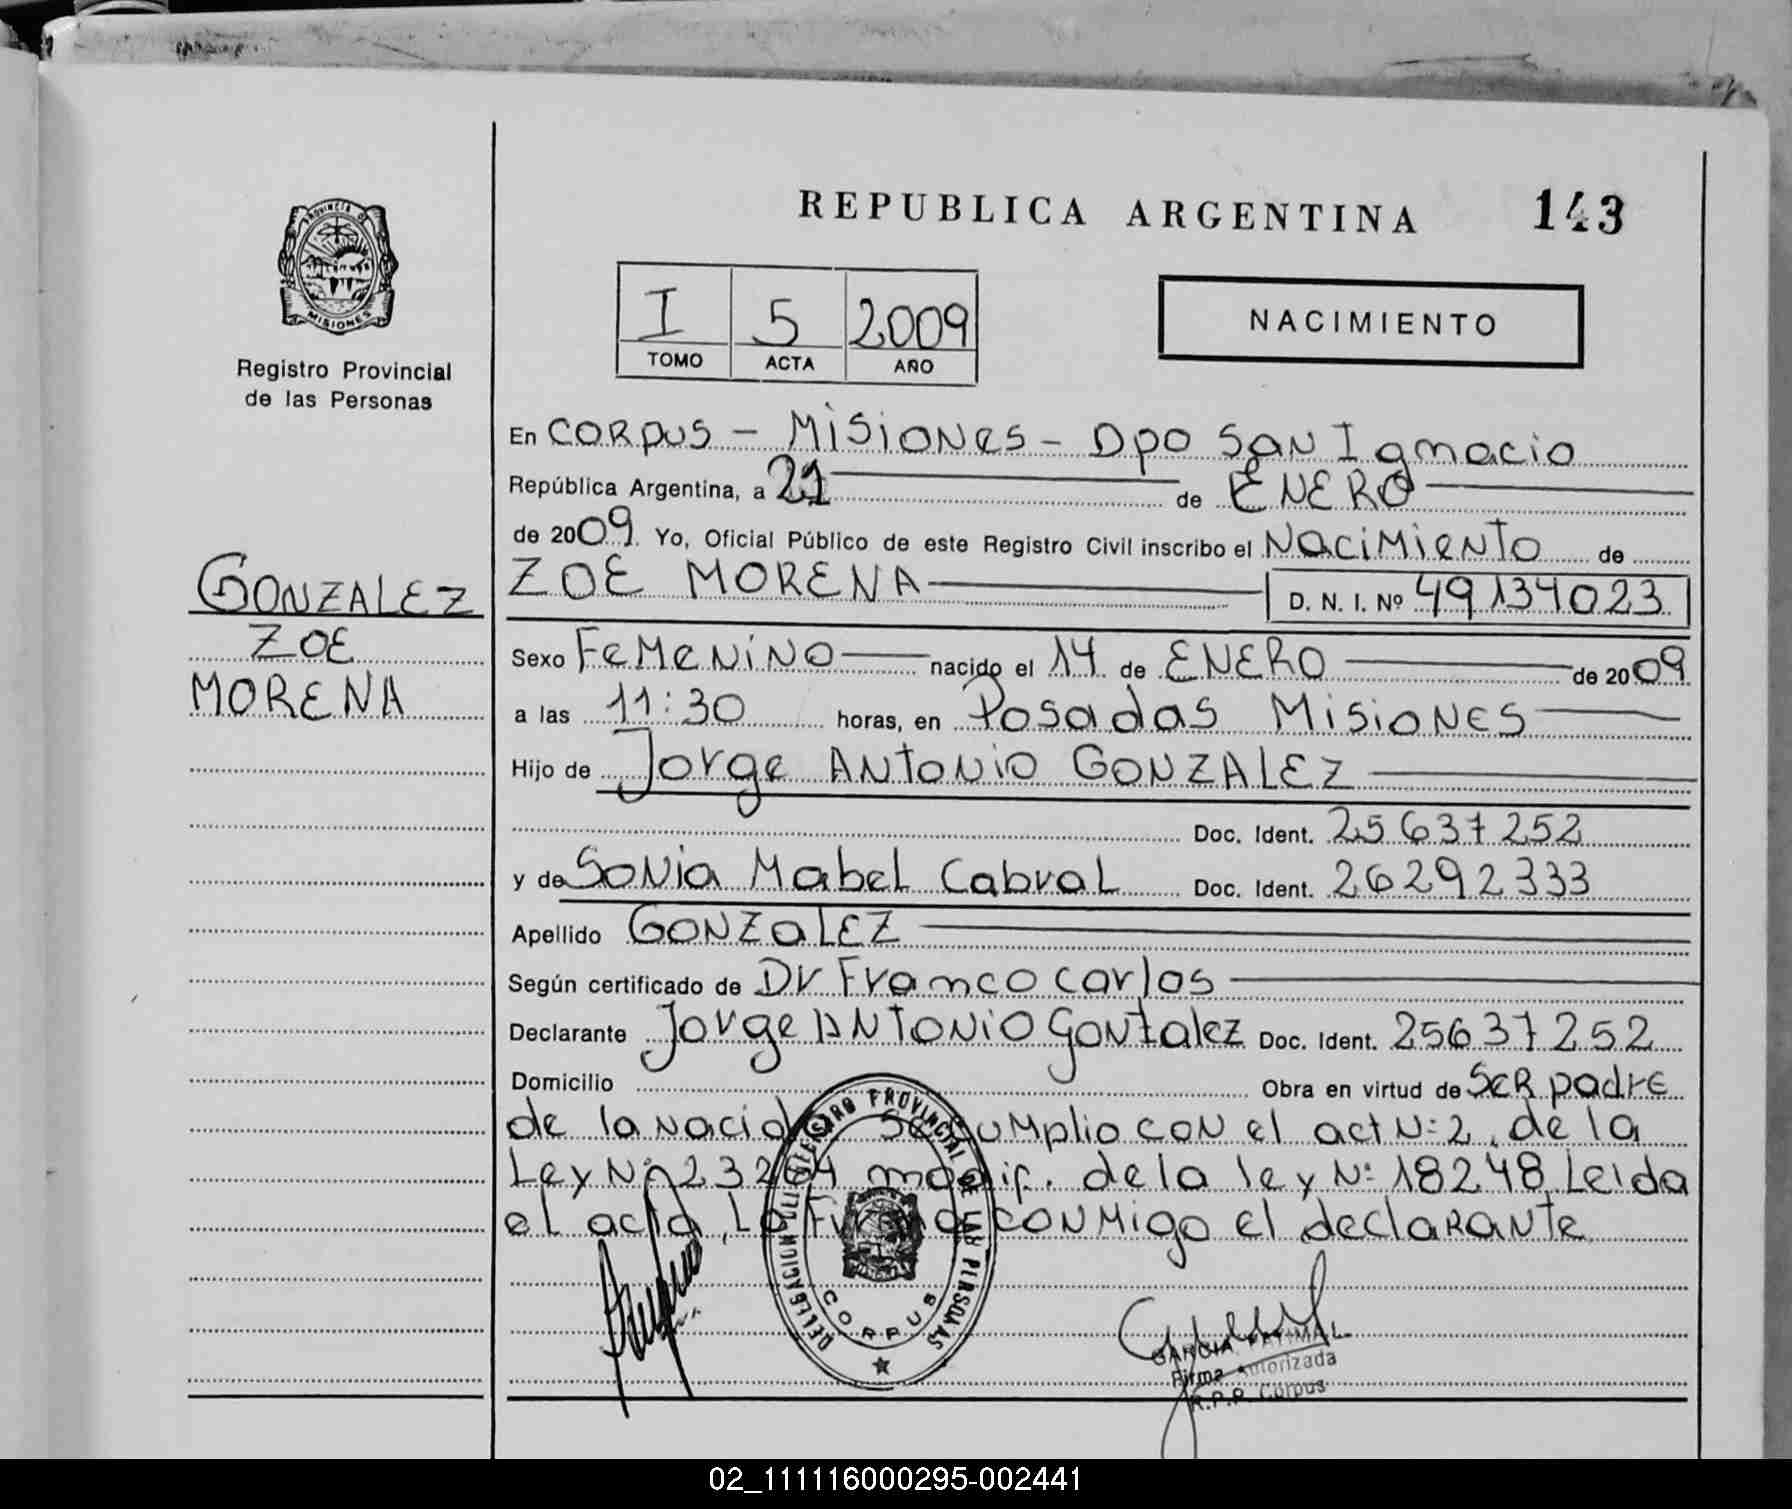 REPUBLICA ARGENTINA 143
PROVINCIA DE
MISIONES
Registro Provincial
de las Personas
I 5 2009
TOMO ACTA AÑO
NACIMIENTO
En CORPUS - MISIONES - DPO SAN Ignacio
República Argentina, a 21 de ENERO
de 2009. Yo, Oficial Público de este Registro Civil inscribo el NACIMIENTO de
ZOE MORENA D. N. I. Nº 49134023
GONZALEZ
ZOE
MORENA
Sexo FEMENINO nacido el 14 de ENERO de 2009
a las 11:30 horas, en Posadas MISIONES
Hijo de Jorge ANTONIO GONZALEZ
Doc. Ident. 25637252
y de SONIA Mabel Cabral Doc. Ident. 26292333
Apellido GONZALEZ
Según certificado de Dr Franco Carlos
Declarante Jorge ANTONIO Gonzalez Doc. Ident. 25637252
Domicilio Obra en virtud de SER padre
de la Nacida Se cumplio CON el act N: 2. de la
Ley Nº 23264 modif. de la ley Nº 18248 Leida
el acta, La Firma CONMIGO el declarante
DELEGACION DEL REGISTRO PROVINCIAL DE LAS PERSONAS
CORPUS
GARCIA FATIMA L.
Firma Autorizada
R.P.P. Corpus
02_111116000295-002441